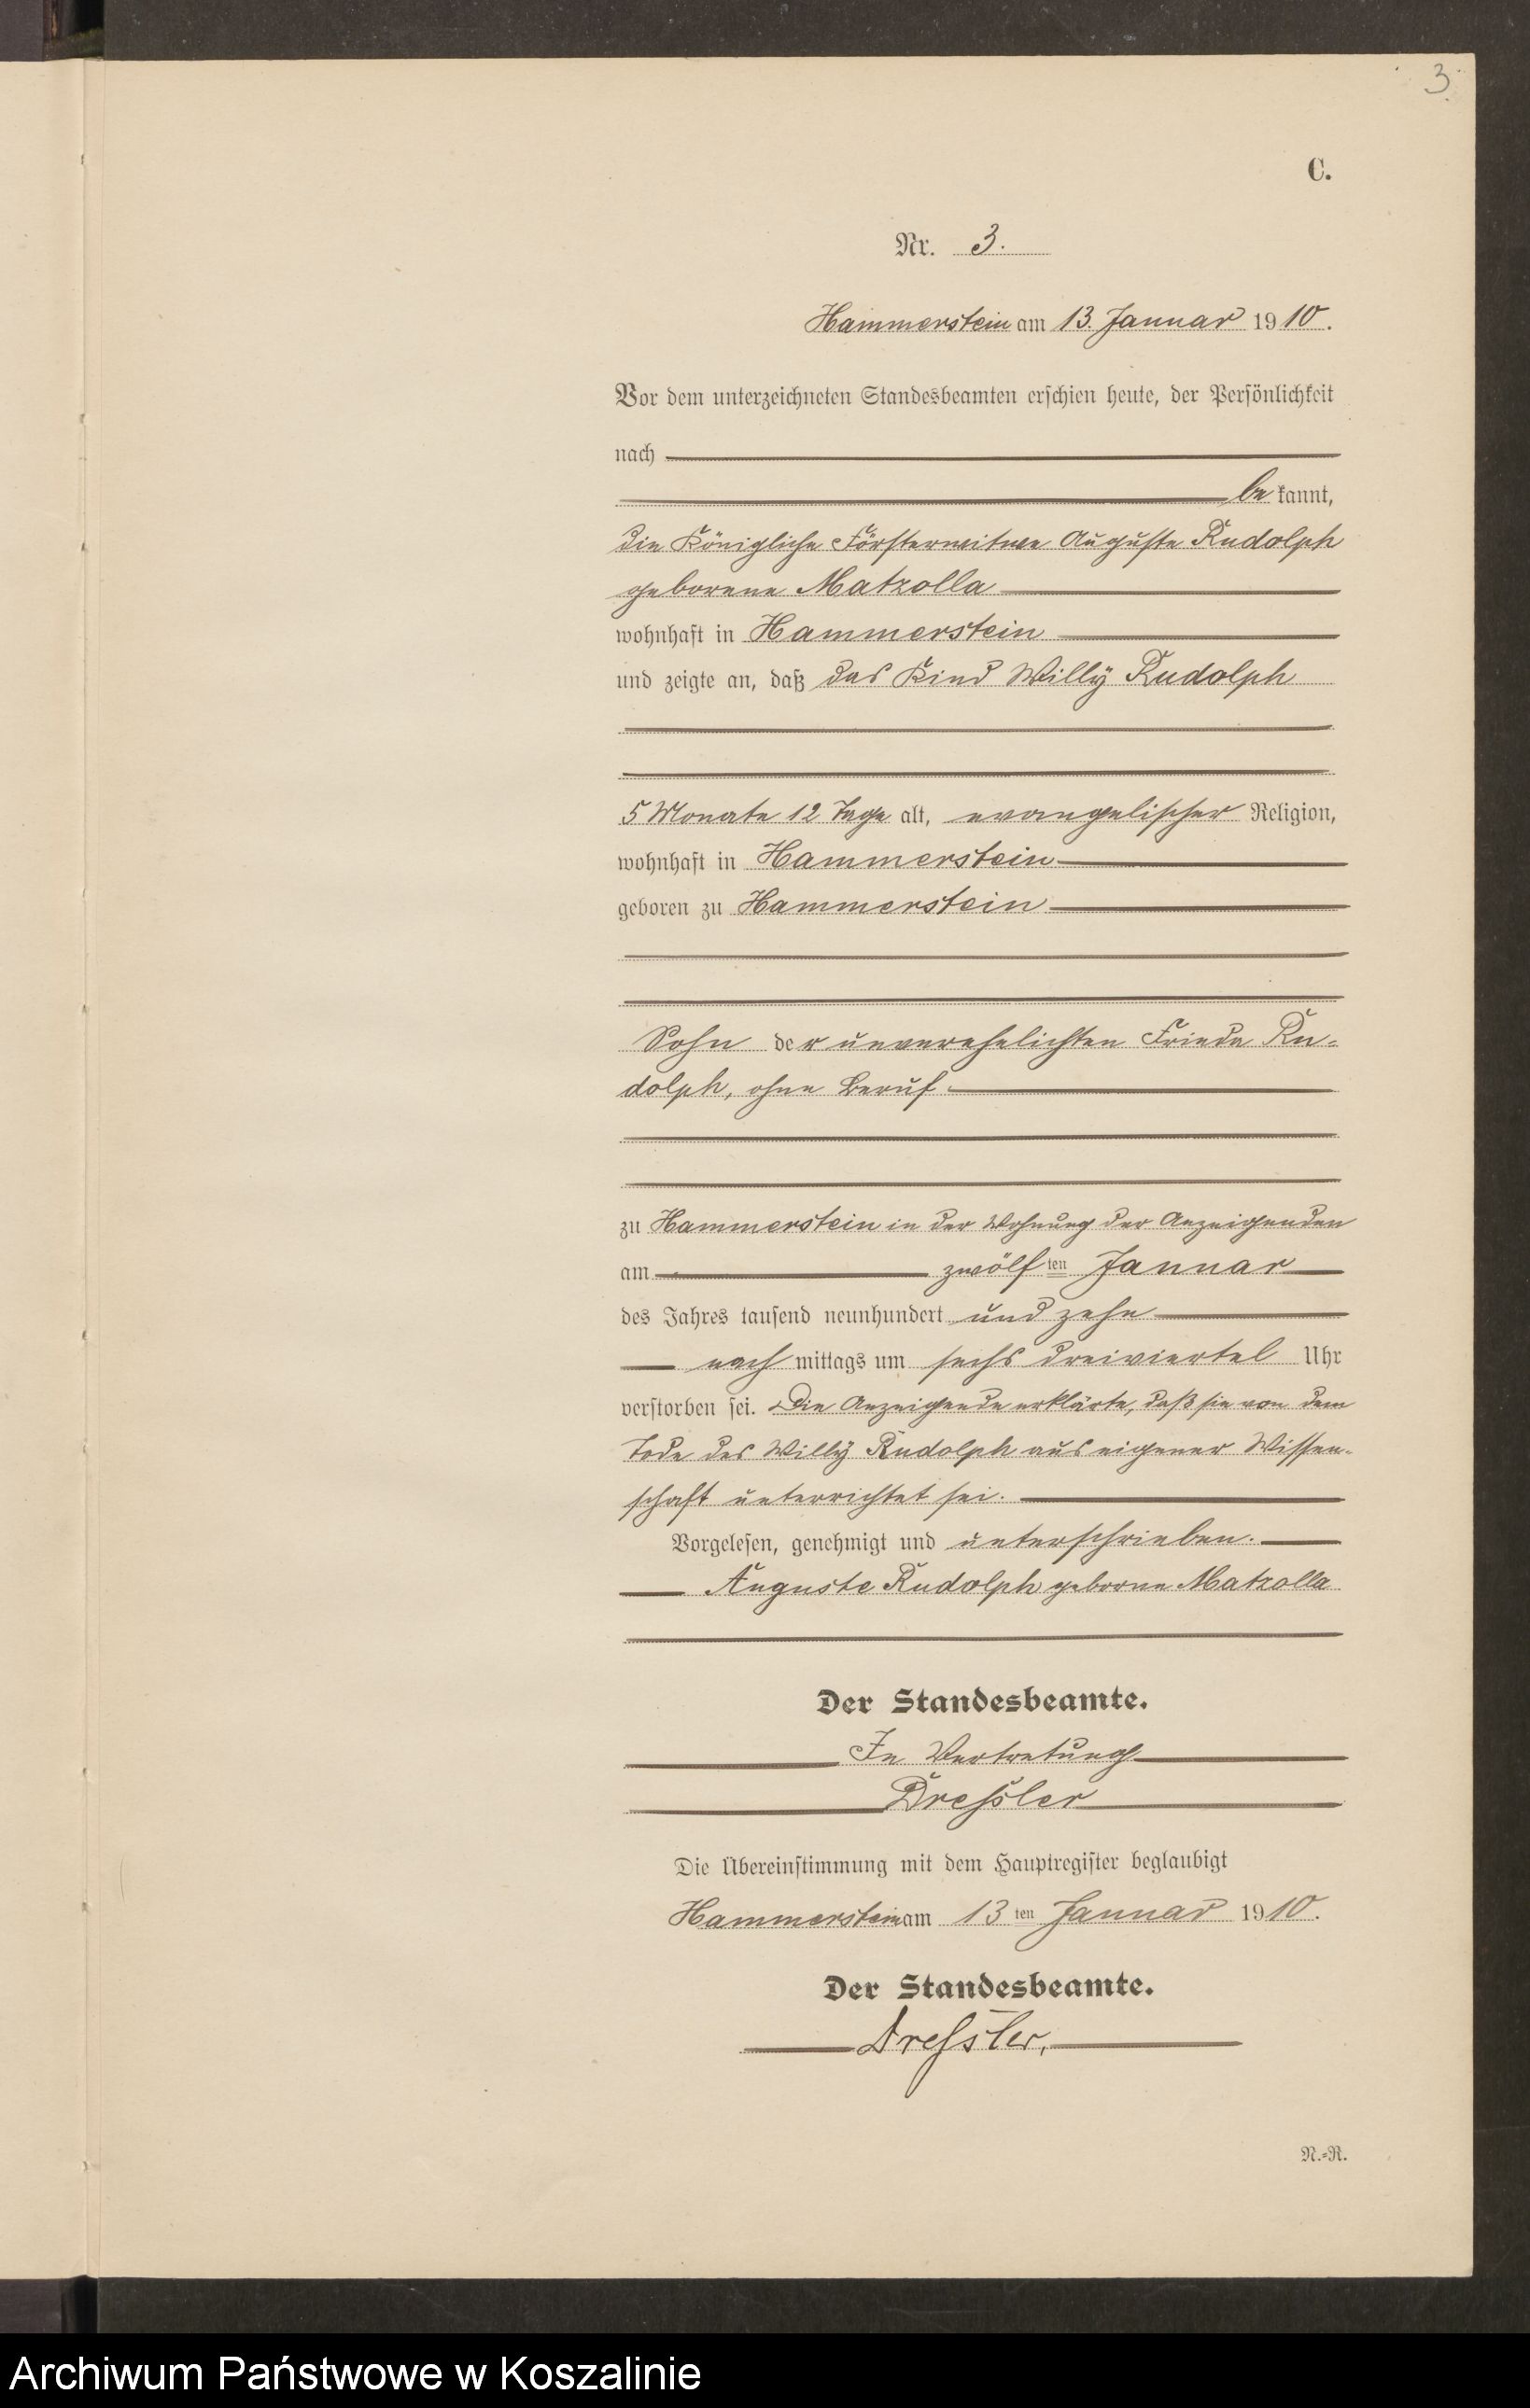 3.
C.
Nr. 3.
Hammerstein am 13. Januar 1910.
Vor dem unterzeichneten Standesbeamten erschien heute, der Persönlichkeit
nach
be kannt,
die Königliche Försterwitwe Auguste Rudolph
geborene Matzolla
wohnhaft in Hammerstein
und zeigte an, daß das Kind Willy Rudolph
5 Monate 12 Tage alt, evangelischer Religion,
wohnhaft in Hammerstein
geboren zu Hammerstein
Sohn der unverehelichten Frieda Ru-
dolph, ohne Beruf
zu Hammerstein in der Wohnung der Anzeigenden
am zwölf ten Januar
des Jahres tausend neunhundert und zehn
nach mittags um sechs dreiviertel Uhr
verstorben sei. Die Anzeigende erklärte, daß sie von dem
Tode des Willy Rudolph aus eigener Wissen-
schaft unterrichtet sei.
Vorgelesen, genehmigt und unterschrieben.
Auguste Rudolph geborne Matzolla
Der Standesbeamte.
In Vertretung
Dreßler
Die Übereinstimmung mit dem Hauptregister beglaubigt
Hammerstein am 13 ten Januar 1910.
Der Standesbeamte.
Dreßler.
N.-R.
Archiwum Państwowe w Koszalinie